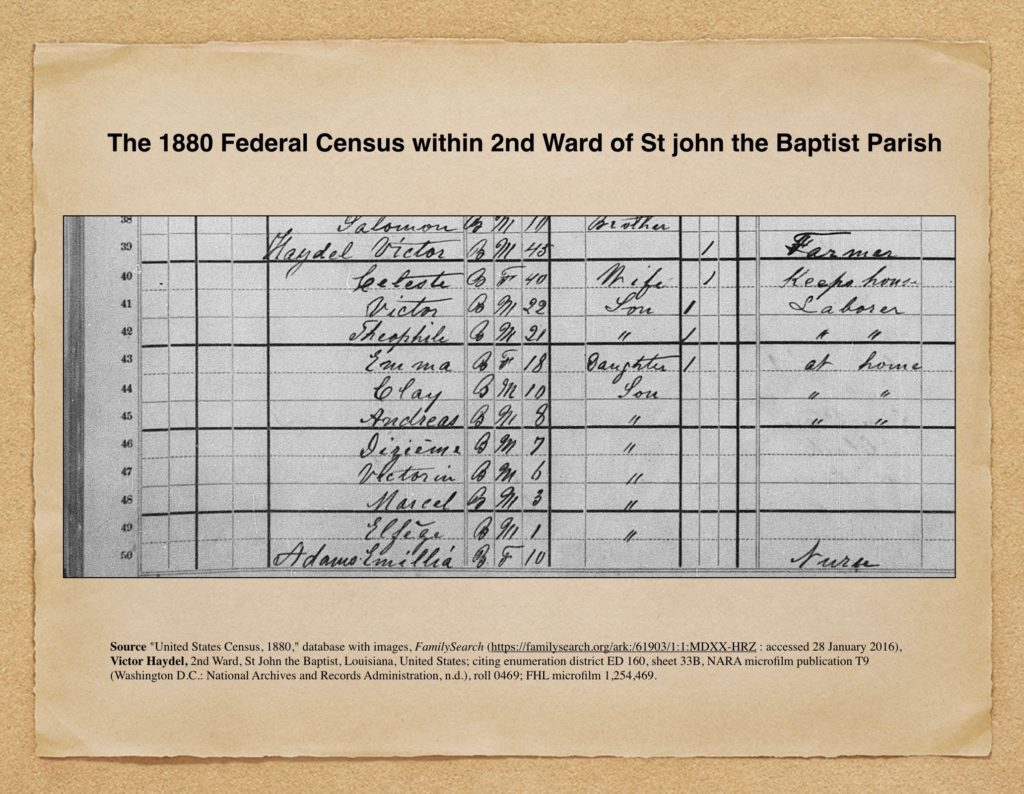 The 1880 Federal Census within 2nd Ward of St john the Baptist Parish
38 Salomon B M 10 Brother
39 Haydel Victor B M 45 1 Farmer
40 Celeste B F 40 Wife 1 Keeps hous
41 Victor B M 22 Son 1 Laborer
42 Theophile B M 21 " 1 " "
43 Emma B F 18 Daughter 1 at home
44 Clay B M 10 Son " "
45 Andreas B M 8 " " "
46 Dizième B M 7 "
47 Victorin B M 6 "
48 Marcel B M 3 "
49 Elfége B M 1 "
50 Adams Emillia B F 10 Nurse
Source "United States Census, 1880," database with images, FamilySearch (https://familysearch.org/ark:/61903/1:1:MDXX-HRZ : accessed 28 January 2016),
Victor Haydel, 2nd Ward, St John the Baptist, Louisiana, United States; citing enumeration district ED 160, sheet 33B, NARA microfilm publication T9
(Washington D.C.: National Archives and Records Administration, n.d.), roll 0469; FHL microfilm 1,254,469.